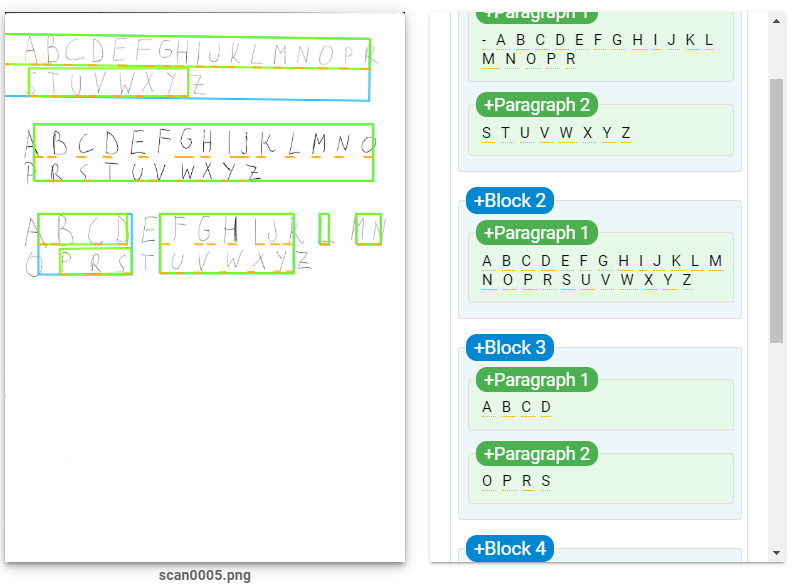 A B C D E F G H I J K L M N O P R
S T U V W X Y Z
A B C D E F G H I J K L M N O
P R S T U V W X Y Z
A B C D E F G H I J K L M N
O P R S T U V W X Y Z
scan0005.png
+Paragraph 1
- A B C D E F G H I J K L
M N O P R
+Paragraph 2
S T U V W X Y Z
+Block 2
+Paragraph 1
A B C D E F G H I J K L M
N O P R S U V W X Y Z
+Block 3
+Paragraph 1
A B C D
+Paragraph 2
O P R S
+Block 4